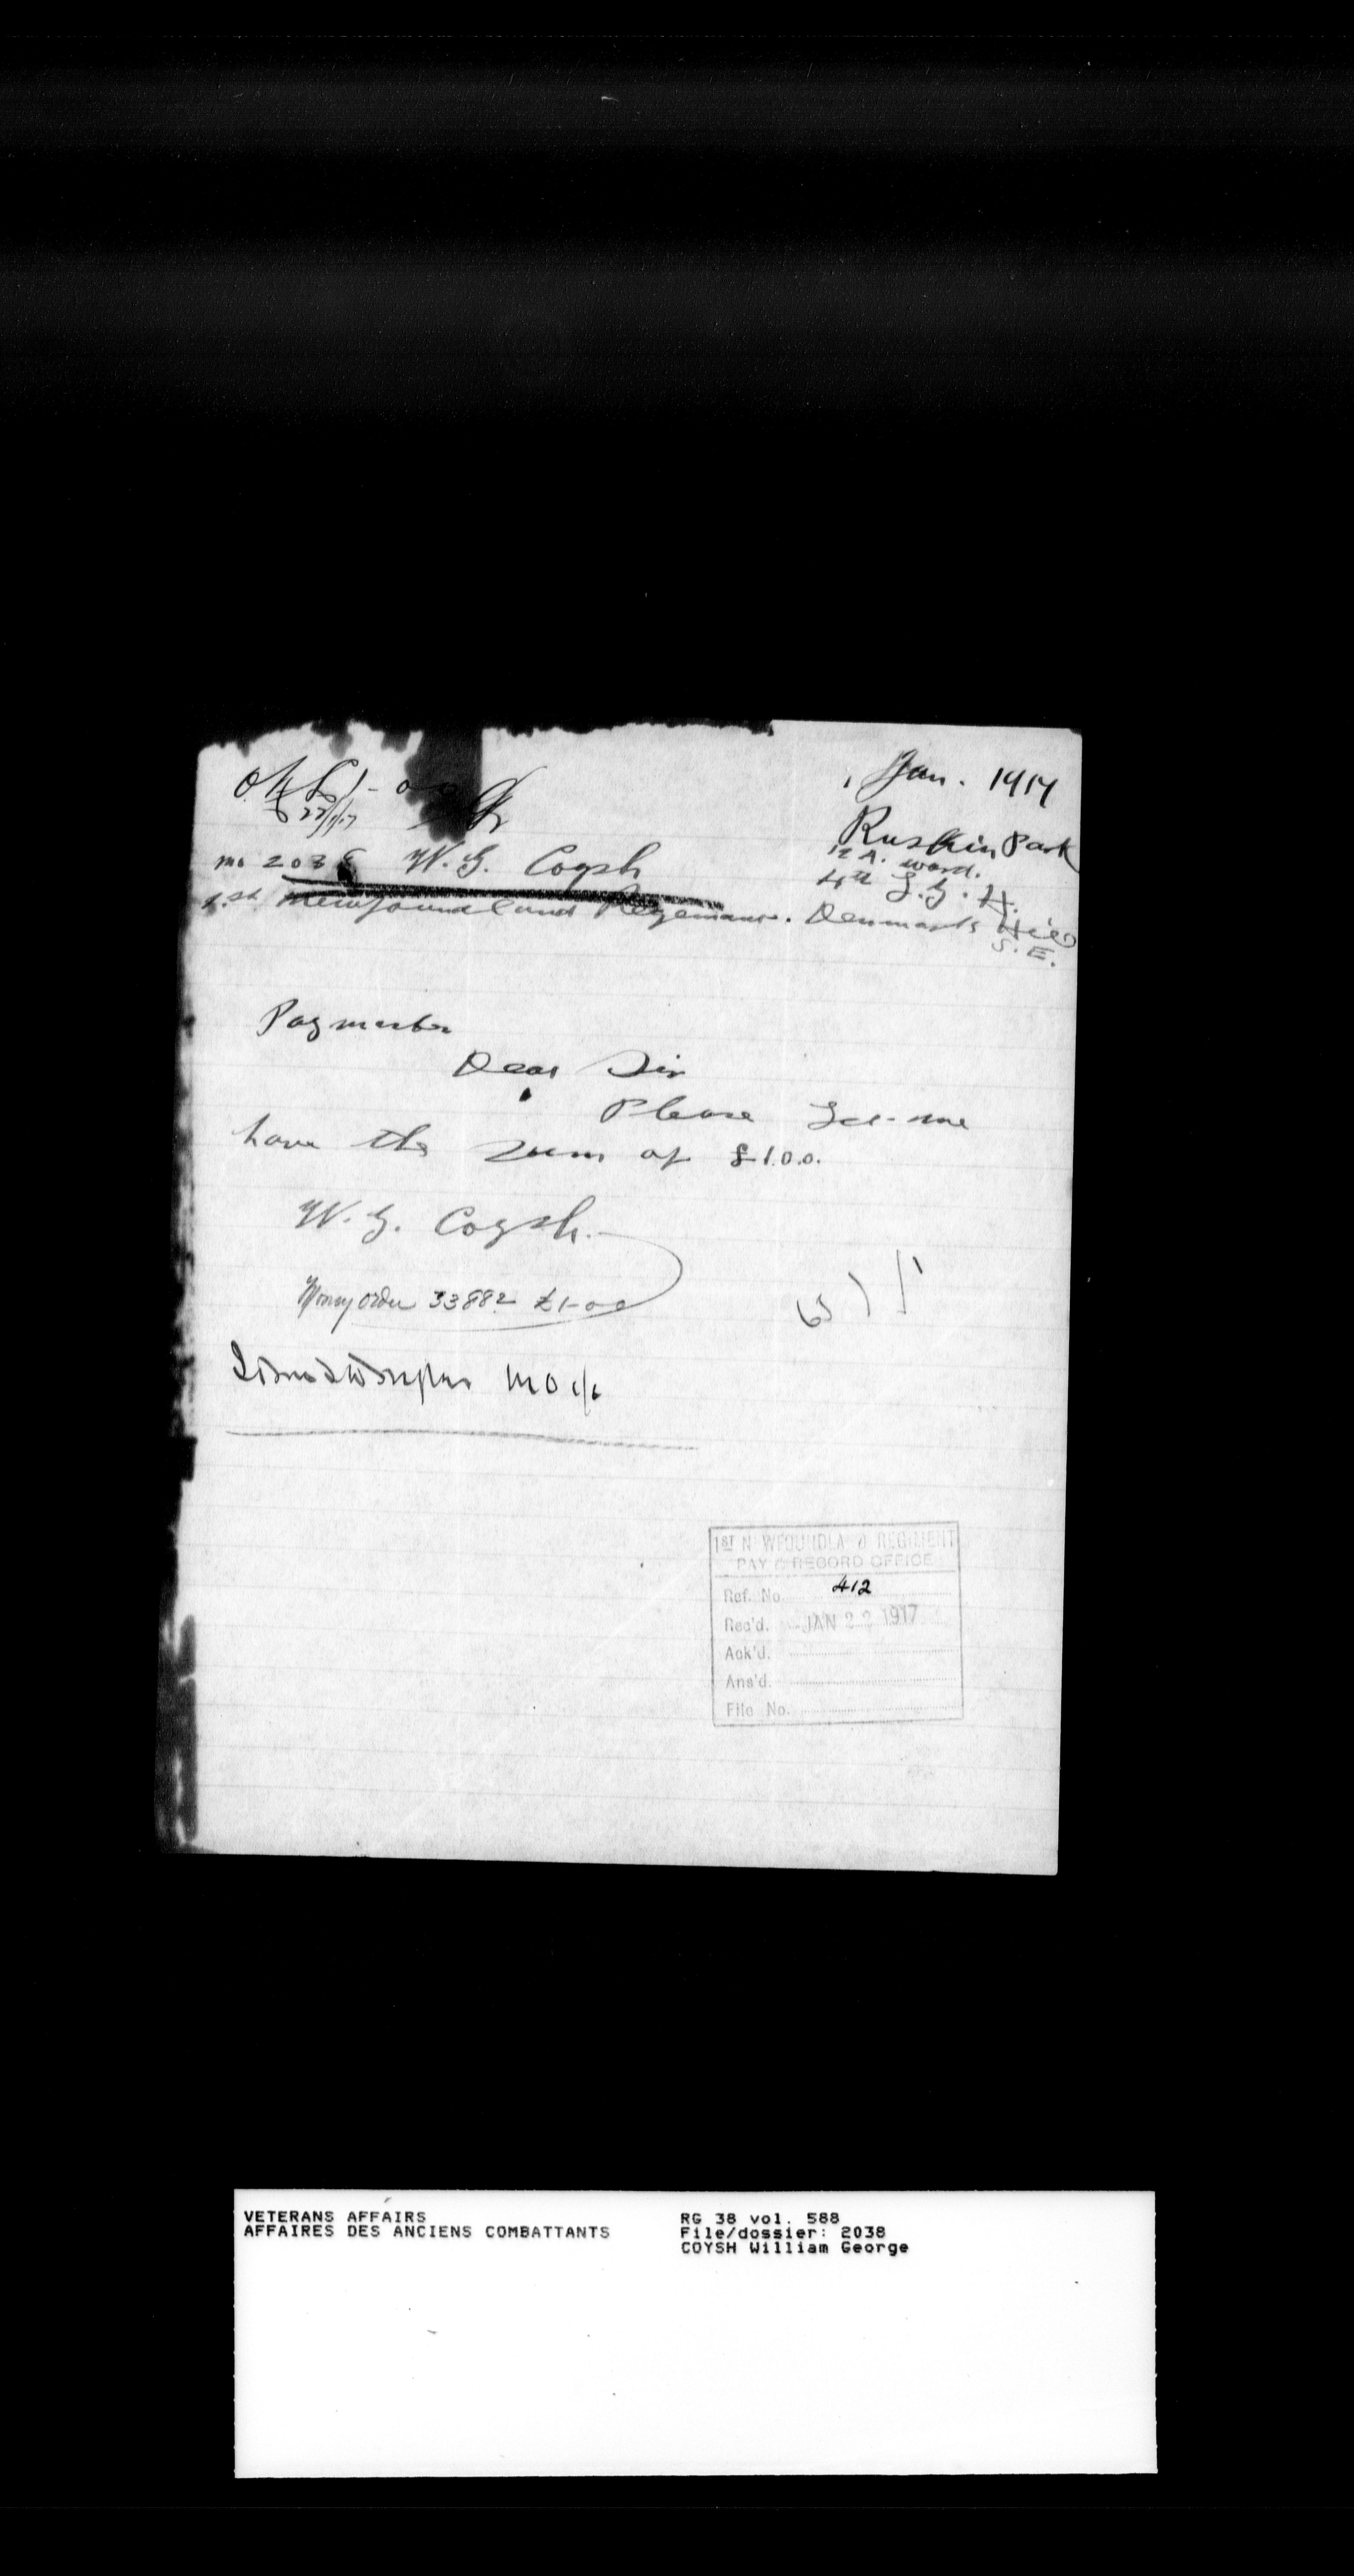 O.K. £1-0-0
22/1/17
Jan. 1917
Ruskin Park
12 A. ward.
4th L.G.H.
Denmark Hill
S.E.
No 2038 W.G. Coysh
1.st Newfoundland Regement.
Paymaster
Dear Sir
Please Let-me
have the sum of £1.0.0.
W.G. Coysh.
Money order 33882 £1-0-0
1ST N WFOUNDLA D REGIMENT
PAY & RECORD OFFICE
Ref. No. 412
Rec'd. JAN 22 1917
Ack'd.
Ans'd.
File No.
VETERANS AFFAIRS
AFFAIRES DES ANCIENS COMBATTANTS
RG 38 vol. 588
File/dossier: 2038
COYSH William George